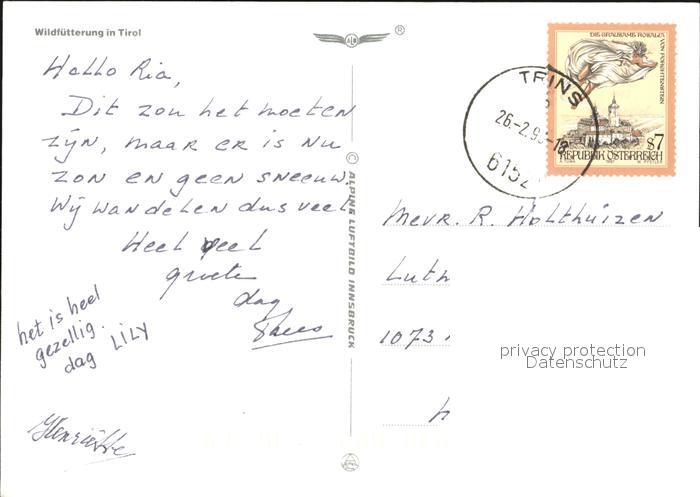 Wildfütterung in Tirol
Hallo Ria,
Dit zou het moeten
zijn, maar er is nu
zon en geen sneeuw.
Wij wandelen dus veel.
Heel veel
groeten
dag
het is heel
gezellig.
dag LILY
Henriëtte
© ALPINE LUFTBILD INNSBRUCK
ALI ®
DIE GRAUSAME ROSALIA
VON FORCHTENSTEIN
S7
REPUBLIK ÖSTERREICH
TRINS
6152
Mevr. R. Holthuizen
Luth
1073
privacy protection
Datenschutz